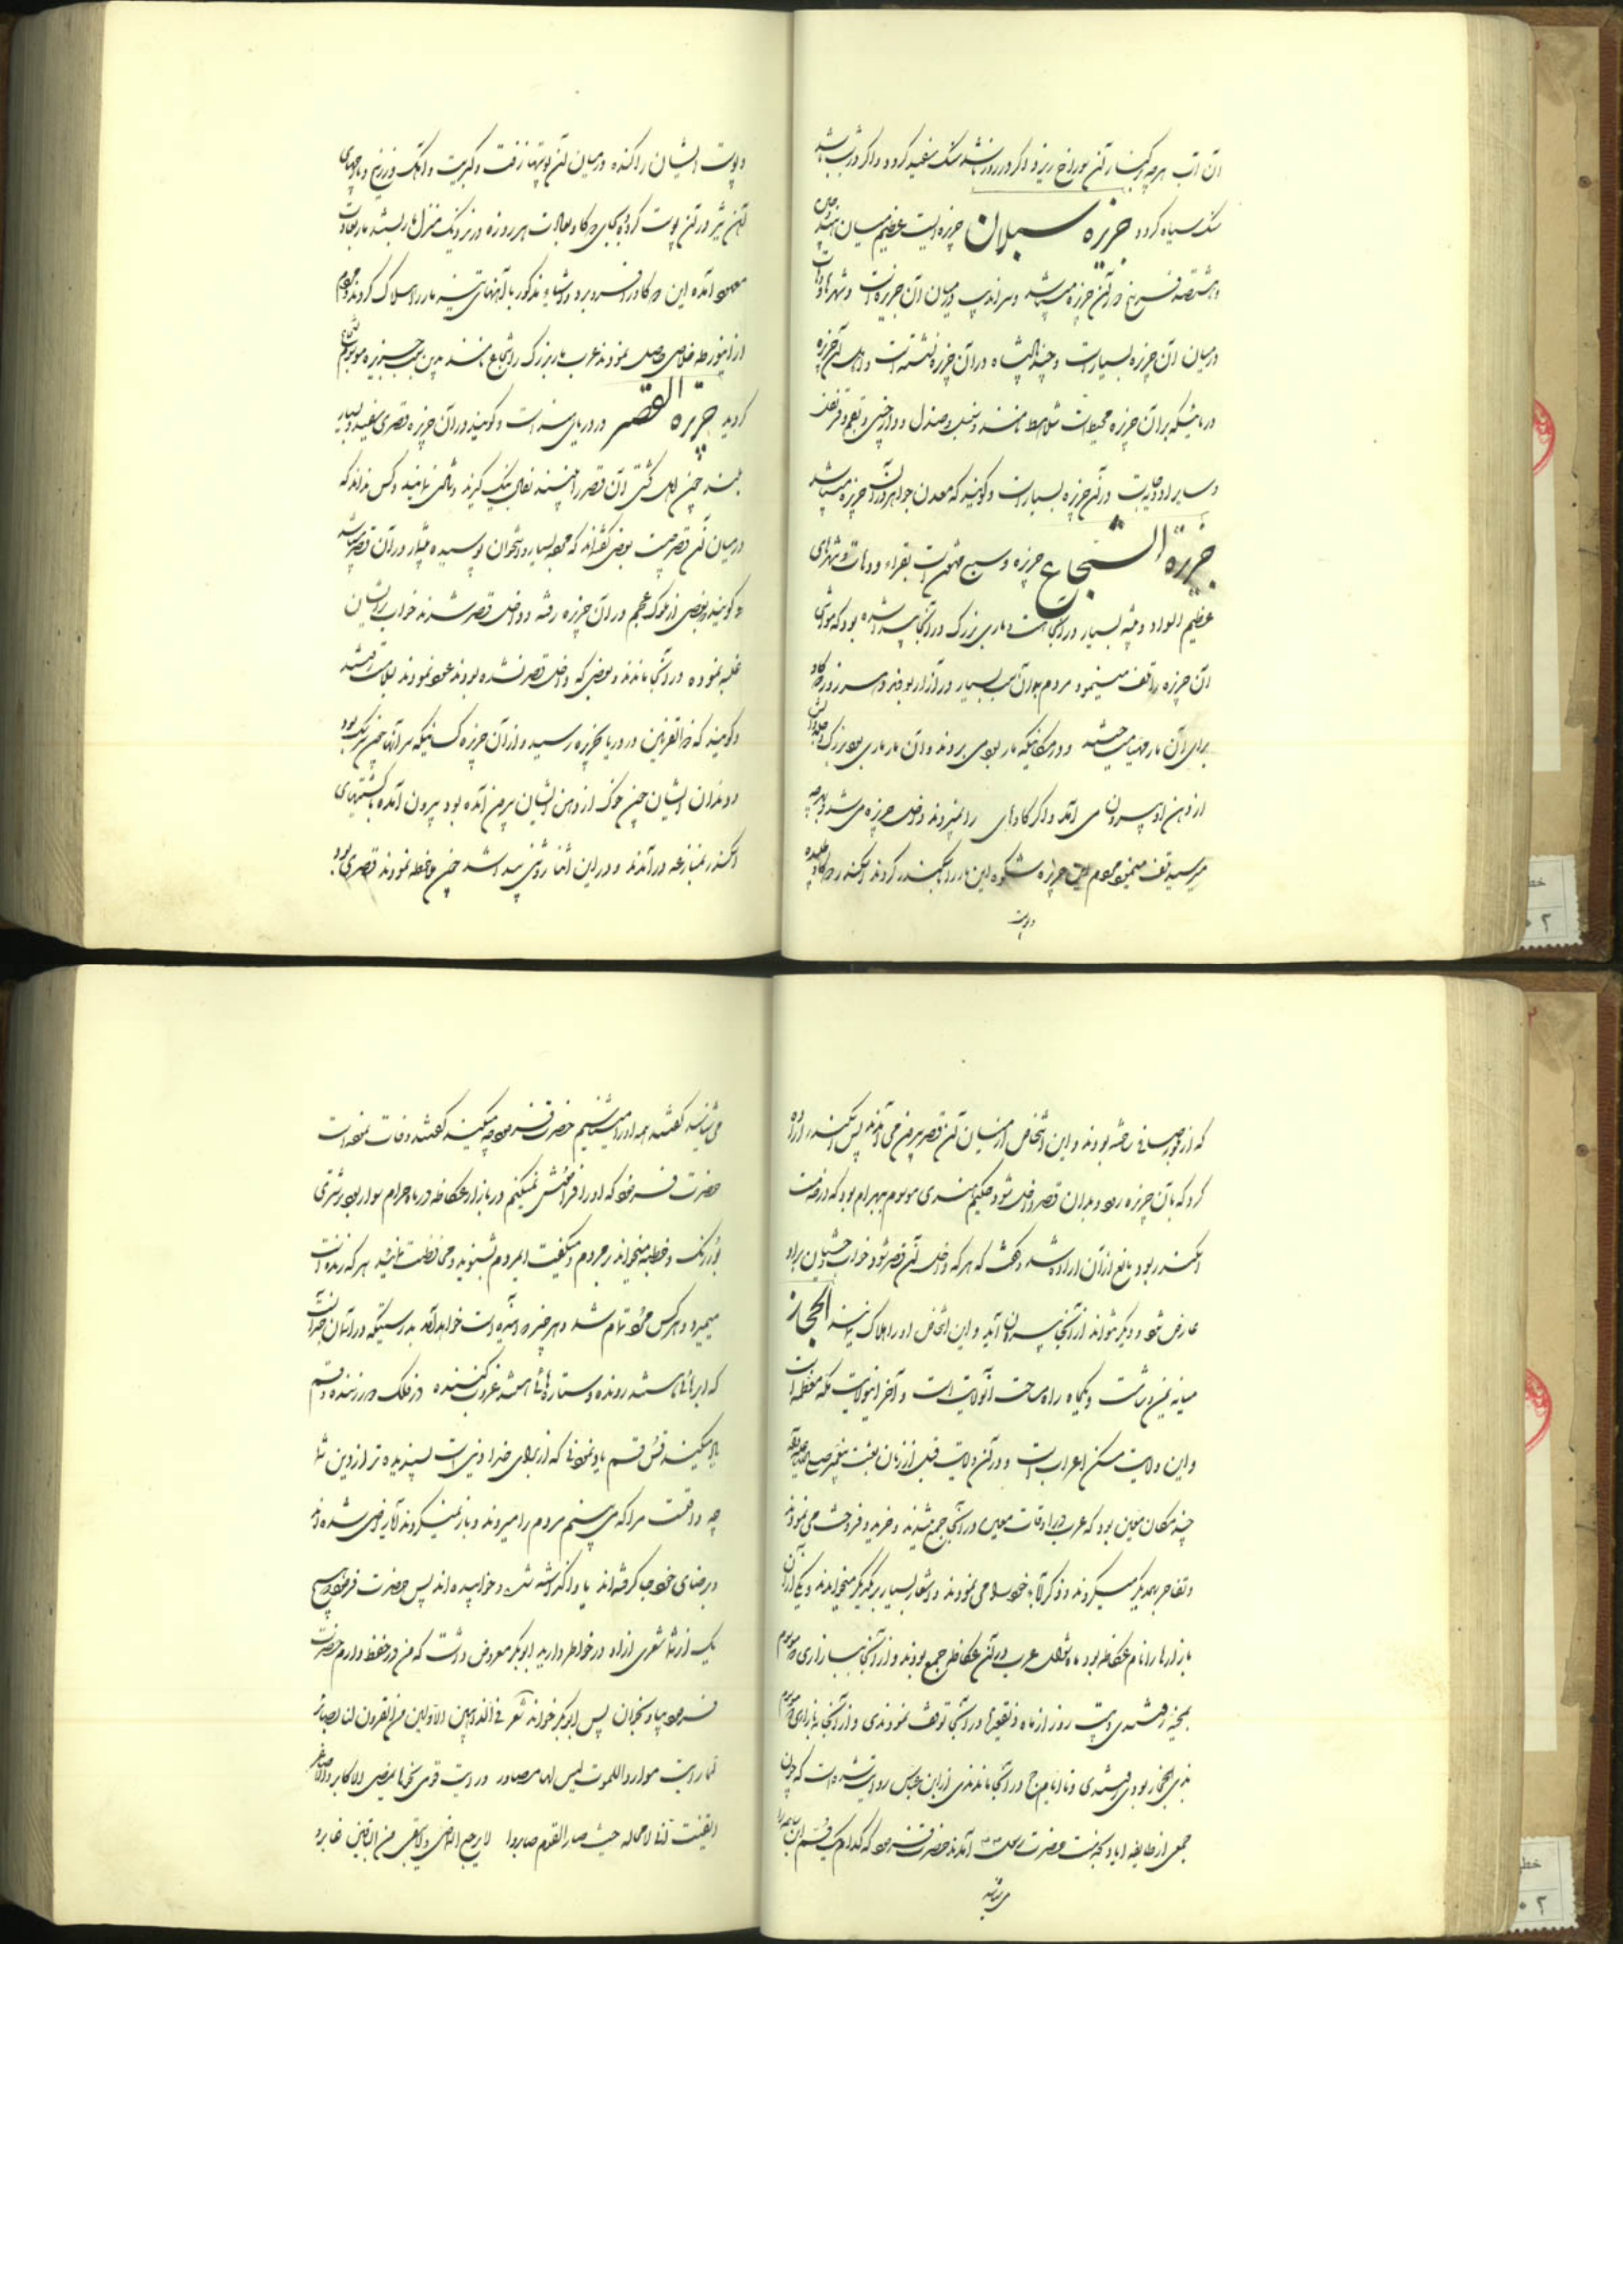 آن آب هرچه بکنار آن سوراخ ریزد اگر در روز باشد سنگ سفید کردد و اگر در شب باشد
سنگ سیاه کردد جزیره سیلان جزیره ایست عظیم میان هند و چین
و هشتصد فرسخ در آن جزیره میباشد و سراندیب در میان آن جزیره است و شهرها و دهات
در میان آن جزیره بسیار است و چند پادشاه در آن جزیره نشسته است و اهل آن جزیره
دریائیکه بر آن جزیره محیط است شلاهط نامند و سنبل و صندل و دارچینی و بقم و قرنفل
و سایر ادویه جات در آن جزیره بسیار است و کویند که معدن جواهر در آن جزیره میباشد
جزیرة الشجاع جزیره وسیع مشحون است بقراء و دهات و شهرهای
عظیم الواد و میشه بسیار در آنجا است و ماری بزرک در آنجا پیدا شده بود که مواشی
آن جزیره را تلف مینمود و مردم بدان سبب بسیار در آزار بودند و هر روز دو کاو
برای آن مار مهیا میساختند و در مکانیکه مار بود می بردند و آن مار ماری بود بزرک و چند
از دهن او بیرون می آمد و اگر کاوهای را نمیبردند داخل جزیره می شد و بهرچه
میرسید تلف مینمود مردم این جزیره شکوه این مار را باسکندر کردند اسکندر دو کاو طلبیده
و پوست
و پوست ایشان را کنده و در میان آن پوستها زفت و کبریت و آهک و زرنیخ و پارچهای
آهن نیز در آن پوست کرده بجای دو کاو بعادت هر روزه در نزدیک منزل مار بسته مار بعادت
معهود آمده این دو کاو را فرو برد و اشیاء مذکور با آهنهای تیز مار را هلاک کردند و مردم
از این ورطه خلاصی حاصل نمودند عرب مار بزرک را شجاع نامند بدین سبب جزیره موسوم باین
کردید جزیرة القصر در دریای هند است و کویند در آن جزیره قصری سفید و بسیار
بلند چون اهل کشتی آن قصر را به بینند بفال نیک گیرند و نامند و کس نداند که
در میان آن قصر چیست بعضی گفته‌اند که جمعه بسیار و استخوان پوسیده بیشمار در آن قصر میباشد
و کویند بعضی از ملوک عجم در آن جزیره رفته و داخل قصر شدند خواب بر ایشان
غلبه نموده در آنجا ماندند و بعضی که داخل قصر نشده بودند عود نمودند بسلامت رفتند
و کویند که ذو القرنین در دریا بجزیره رسید و از آن جزیره کسانیکه سر آنها چون سر سک بود
و دندان ایشان چون خوک از دهن ایشان بیرون آمده بود بیرون آمده با کشتیهای
اسکندر بمنازعه درآمدند و در این اثنا روشنی پیدا شد چون ملاحظه نمودند قصری بود
که از بلور صافی ساخته بودند و این اشخاص از میان آن قصر بیرون می آمدند پس اسکندر اراده
کرد که بآن جزیره رود و بدان قصر داخل شود حکیم هندی موسوم ببهرام بود که در خدمت
اسکندر بود مانع از آن اراده شد و گفت که هر که داخل آن قصر شود خواب چشمان بر او
عارض شود و دیگر نتواند از آنجا بیرون آید و این اشخاص او را هلاک نمایند الحجاز
میانه یمن و شام است و یکماه راه مساحت آنولایت است و آخر اینولایت مکه معظمه است
و این ولایت مسکن اعراب است و در آن ولایت قبل از زمان بعثت پیغمبر صلی الله علیه و آله
چند مکان معین بود که عرب در اوقات معین در آنجا جمع میشدند و خرید و فروخت می نمودند
و تفاخر بهمدیگر میکردند و ذکر آباء خود را می نمودند و اشعار بسیار بر یکدیگر میخواندند و یکی از آن
بازارها را نام عکاظ بود ماه شوال عرب در آن عکاظ جمع بودند و از آنجا ببازاری موسوم
بمجنه رفتندی و بیست روز از ماه ذیقعده را در آنجا توقف نمودندی و از آنجا ببازاری موسوم
بذی المجاز بودی رفتندی و تا ایام حج در آنجا ماندندی از ابن عباس روایت شده است که چون
جمعی از طایفه ایاد بخدمت حضرت رسول آمدند حضرت فرمود که کدام یک قس ابن ساعده را
می شناسد
می شناسد گفتند همه او را میشناسیم حضرت فرمود چه میکند گفتند وفات نموده است
حضرت فرمود که او را فراموش نمیکنم در بازار عکاظ در ماه حرام سوار بود بر شتری
بور رنک و خطبه میخواند بر مردم و میگفت ایمردم بشنوید و محافظت نمائید هر که زنده است
میمیرد و هر کس مرد تمام شد و هر چیز که آینده است خواهد آمد بدرستیکه در آسمان خبر است
که ابرها باشد رونده و ستاره‌ها باشد غروب کننده در فلک دور زننده و قسم
یاد میکند قس قسم یاد نمودنی که از برای خدا دینی است پسندیده تر از دین شما
چه واقعست مرا که می بینم مردم را میروند و باز نمیکردند آیا راضی شده‌اند
و برضای خود جا گرفته‌اند یا واگذاشته شده و خوابیده‌اند پس حضرت فرمود هیچ
یک از شما شعری از او در خواطر دارید ابوبکر معروض داشت که من در حفظ دارم حضرت
فرمود بیا و بخوان پس ابوبکر خواند شعر فی الذاهبین الاولین من القرون لنا بصائر
لما رایت مواردا للموت لیس لها مصادر و رایت قومی نحوها یمضی الاکابر و الاصاغر
ایقنت انی لا محاله حیث صار القوم صایروا لا یرجع الماضی و لا یبقی من الباقین غابر